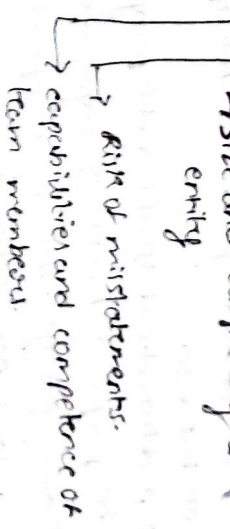 entity
→ Risk of misstatements.
→ capabilities and competence of
team members.